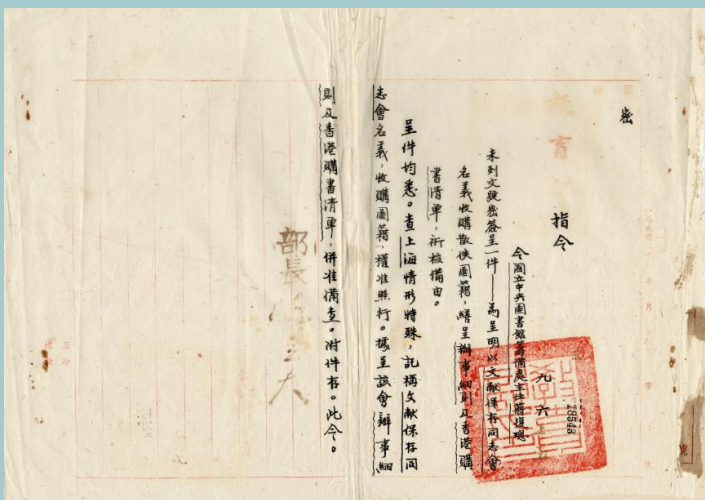 密
教育
指令
令國立中央圖書館籌備處主任蔣復璁
九 六
28543
未列文號密簽呈一件——為呈明以文獻保存同志會
名義收購散佚圖籍,繕呈辦事細則及香港購
書清單,祈核備由。
呈件均悉。查上海情形特殊,託稱文獻保存同
志會名義,收購圖籍,權准照行。據呈該會辦事細
則及香港購書清單,併准備查。附件存。此令。
部長